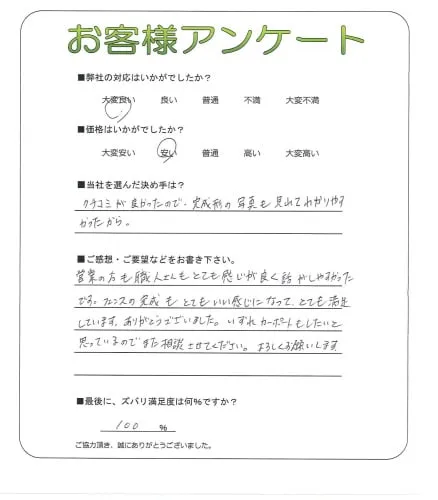 お客様アンケート
■弊社の対応はいかがでしたか？
大変良い 良い 普通 不満 大変不満
■価格はいかがでしたか？
大変安い 安い 普通 高い 大変高い
■当社を選んだ決め手は？
クチコミが良かったので、完成形の写真も見れてわかりやす
かったから。
■ご感想・ご要望などをお書き下さい。
営業の方も職人さんもとても感じが良く話がしやすかった
です。フェンスの完成もとてもいい感じになって、とても満足
しています。ありがとうございました。いずれカーポートもしたいと
思っているのでまた相談させてください。よろしくお願いします
■最後に、ズバリ満足度は何％ですか？
100 ％
ご協力頂き、誠にありがとうございました。